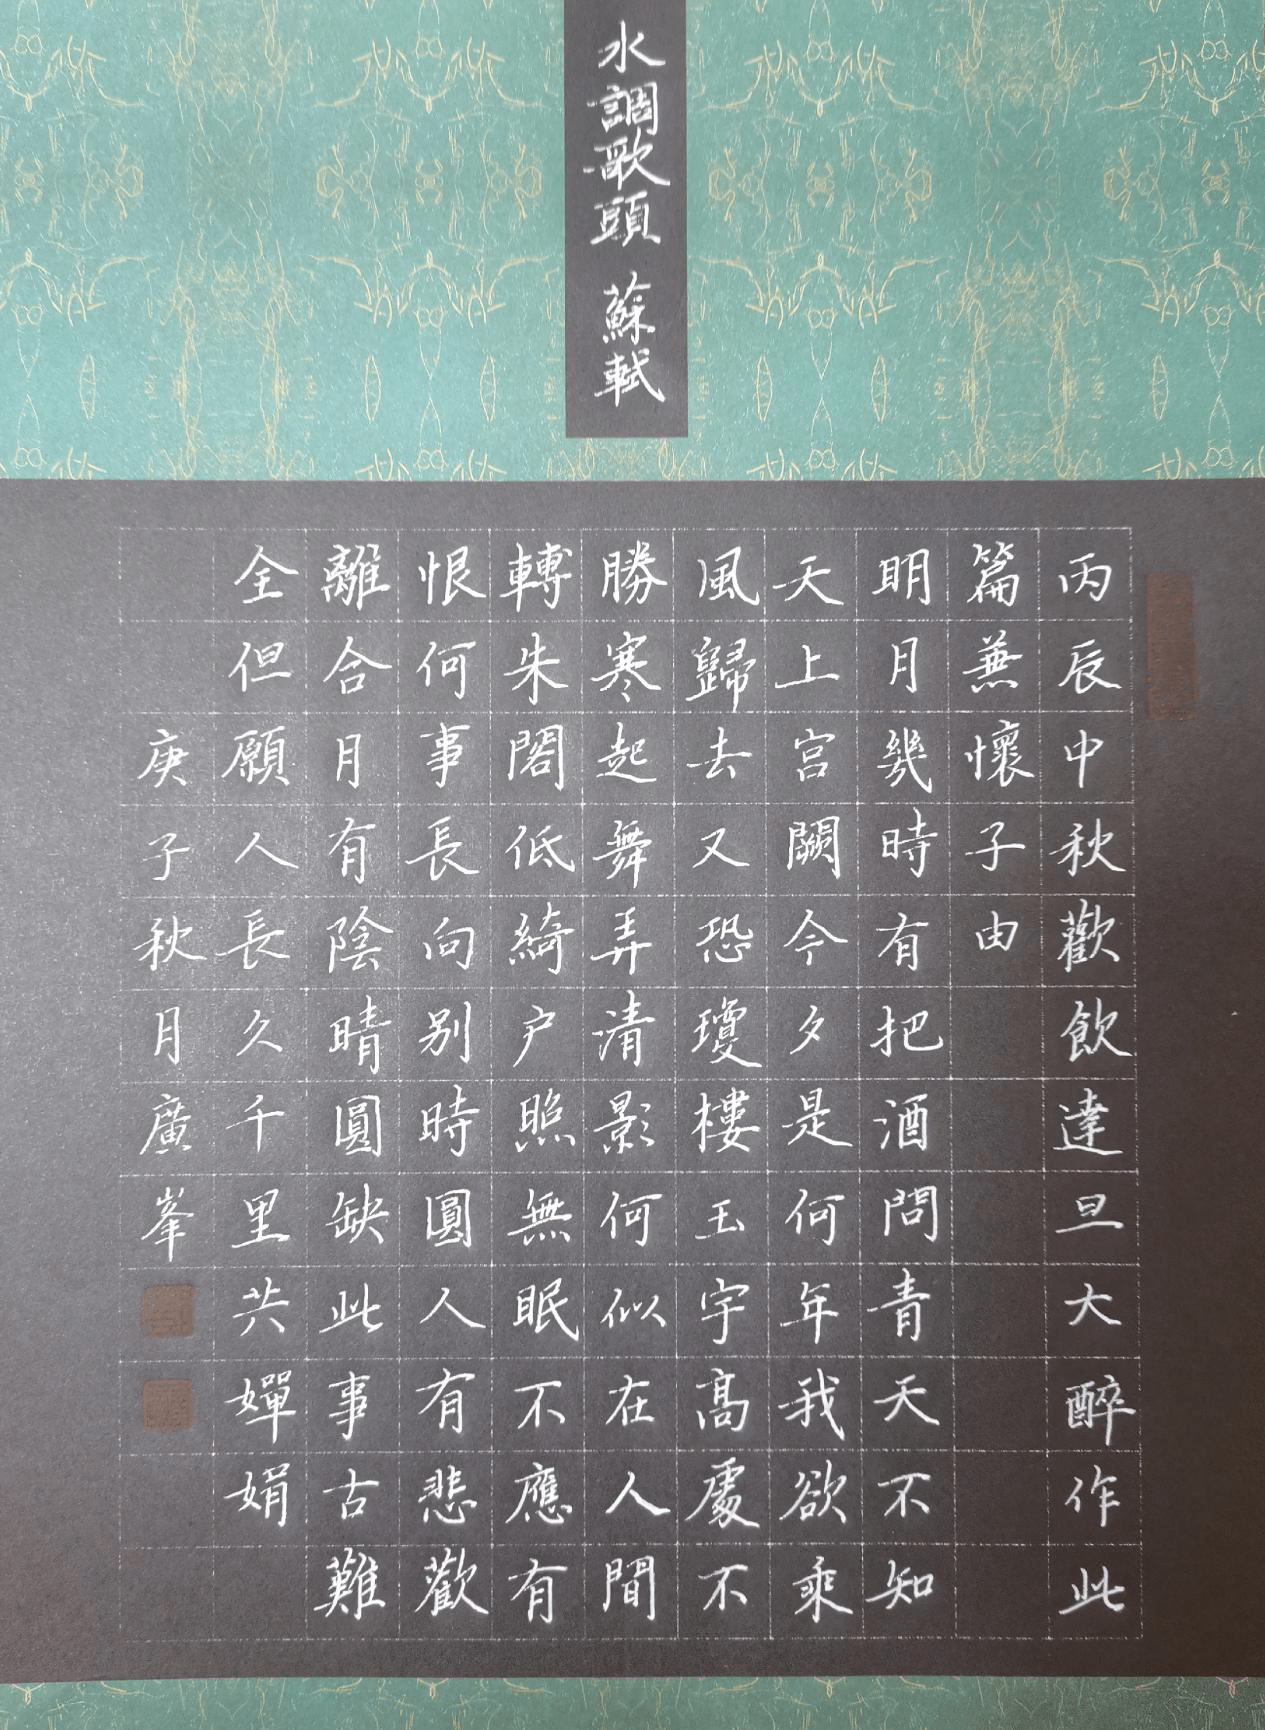 水調歌頭 蘇軾
丙辰中秋歡飲達旦大醉作此
篇兼懷子由
明月幾時有把酒問青天不知
天上宮闕今夕是何年我欲乘
風歸去又恐瓊樓玉宇高處不
勝寒起舞弄清影何似在人間
轉朱閣低綺户照無眠不應有
恨何事長向别時圓人有悲歡
離合月有陰晴圓缺此事古難
全但願人長久千里共嬋娟
庚子秋月廣峯